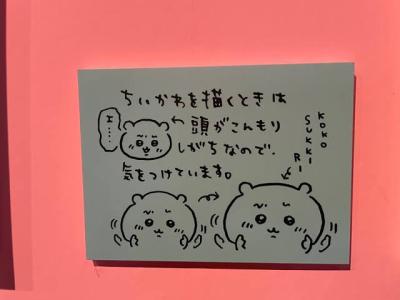 ちいかわを描くときは
エ……
頭がこんもり
しがちなので、
気をつけています。
KOKO
SUKKI
RI